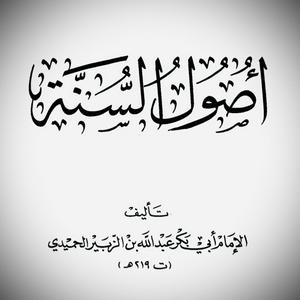 أُصُولُ السُّنَّةِ
تأليف
الإمام أبي بكر عبد الله بن الزبير الحميدي
(ت ٢١٩ هـ)